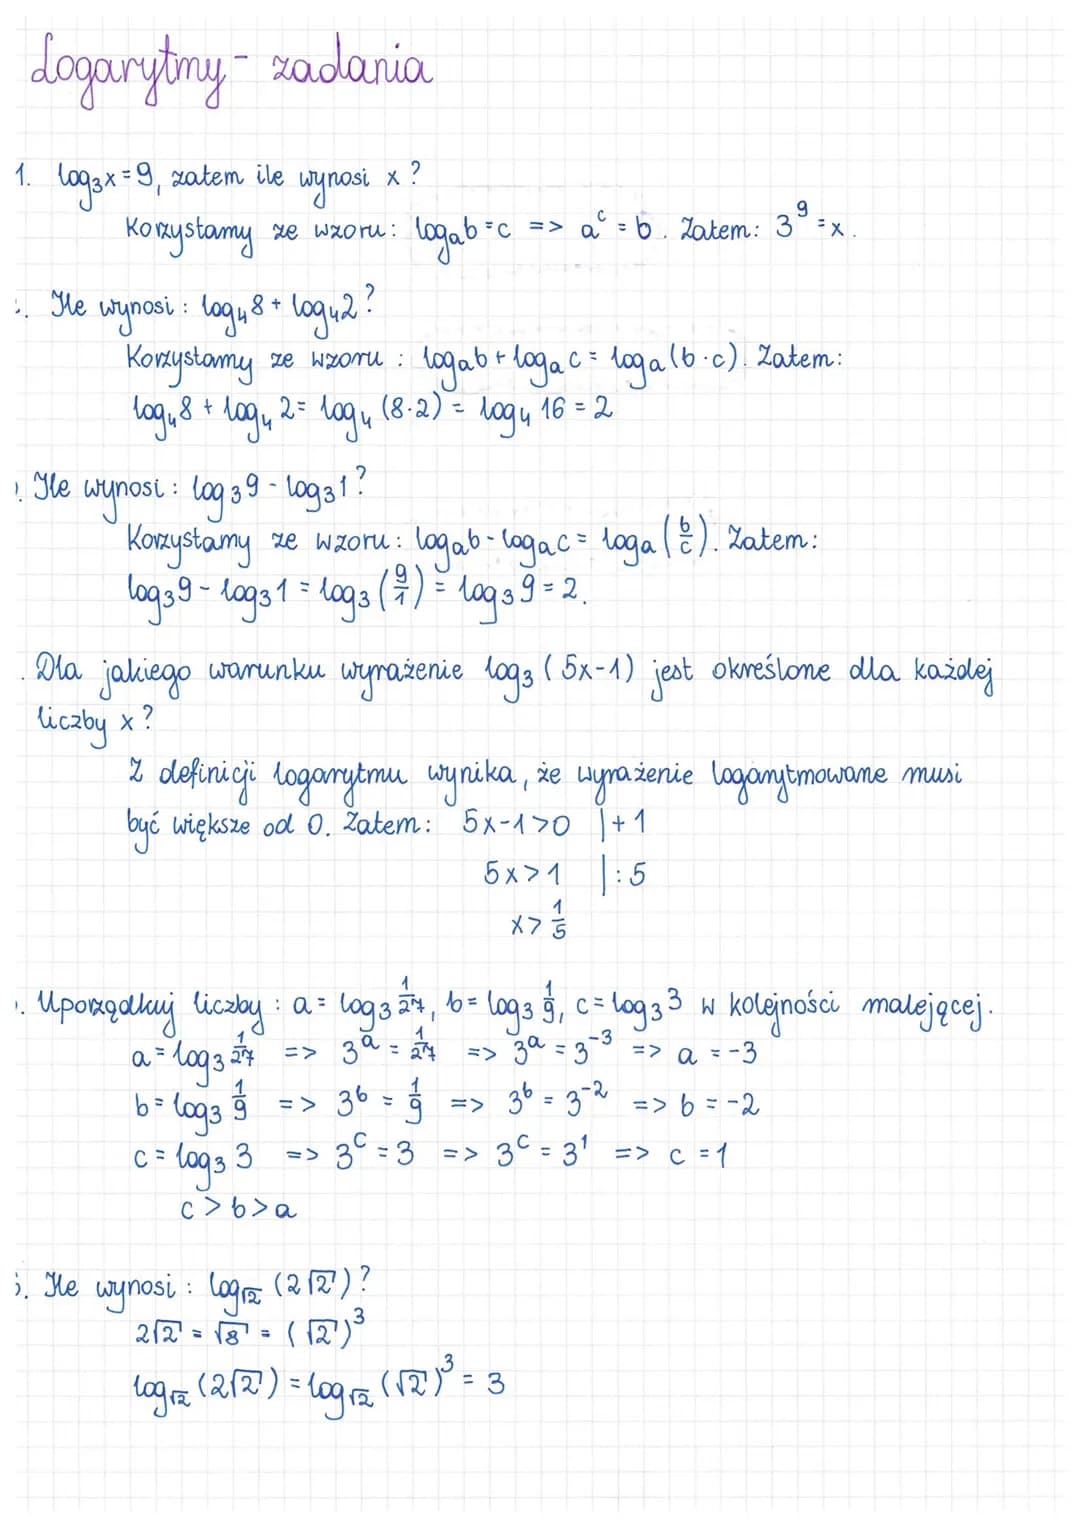 Logarytmy - zadania
1. log₃x = 9, zatem ile wynosi x?
Korzystamy ze wzoru: logₐb = c => aᶜ = b. Zatem: 3⁹ = x.
. Ile wynosi: log₄8 + log₄2?
Korzystamy ze wzoru: logₐb + logₐc = logₐ(b·c). Zatem:
log₄8 + log₄2 = log₄(8·2) = log₄16 = 2
. Ile wynosi: log₃9 - log₃1?
Korzystamy ze wzoru: logₐb - logₐc = logₐ(b/c). Zatem:
log₃9 - log₃1 = log₃(9/1) = log₃9 = 2.
. Dla jakiego warunku wyrażenie log₃(5x-1) jest określone dla każdej
liczby x?
Z definicji logarytmu wynika, że wyrażenie logarytmowane musi
być większe od 0. Zatem: 5x-1>0 |+1
5x>1 |:5
x>1/5
. Uporządkuj liczby: a = log₃ 1/27, b = log₃ 1/9, c = log₃3 w kolejności malejącej.
a = log₃ 1/27 => 3ᵃ = 1/27 => 3ᵃ = 3⁻³ => a = -3
b = log₃ 1/9 => 3ᵇ = 1/9 => 3ᵇ = 3⁻² => b = -2
c = log₃ 3 => 3ᶜ = 3 => 3ᶜ = 3¹ => c = 1
c > b > a
. Ile wynosi: log√2 (2√2)?
2√2 = √8 = (√2)³
log√2 (2√2) = log√2 (√2)³ = 3